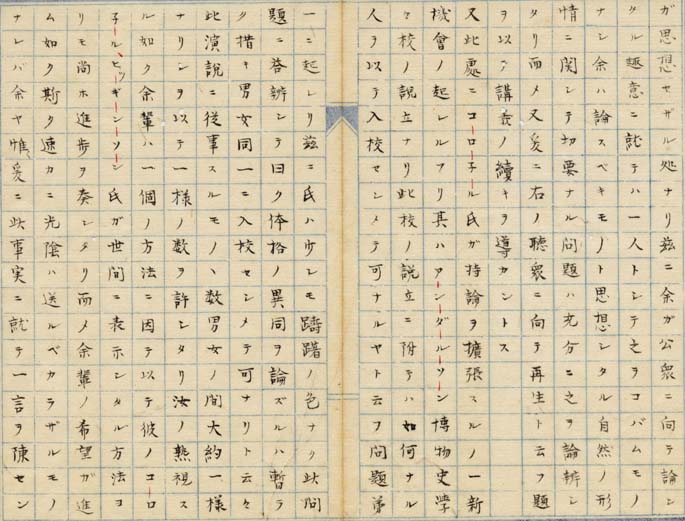 ガ思想セザル処ナリ茲ニ余ガ公衆ニ向テ論シ
タル趣意ニ就テハ一人トシテ之ヲコバムモノ
ナシ余ハ論スベキモノト思想シタル自然ノ形
情ニ関シテ切要ナル問題ハ充分ニ之ヲ論辨シ
タリ而メ又爰ニ右ノ聴衆ニ向テ再生ト云フ題
ヲ以テ講義ノ續キヲ導カントス
又此處ニコーロ子ール氏ガ持論ヲ擴張スルノ一新
機會ノ起レルアリ其ハアンダールソン博物史學
々校ノ説立ナリ此校ノ説立ニ附テハ如何ナル
人ヲ以テ入校セシメテ可ナルヤト云フ問題第
一ニ起レリ茲ニ氏ハ少シモ躊躇ノ色ナク此問
題ニ答辨シテ曰ク体格ノ異同ヲ論ズルハ暫ラ
ク措キ男女同一ニ入校セシメテ可ナリト云々
此演説ニ従事スルモノヽ数男女ノ間大約一様
ナリシヲ以テ一様ノ数ヲ許シタリ汝ノ熟視ス
ル如ク余輩ハ一個ノ方法ニ因テ以テ彼ノコーロ
子ール、ヒッギーンソーン氏ガ世間ニ表示シタル方法ヨ
リモ尚ホ進歩ヲ奏シタリ而メ余輩ノ希望ガ進
ム如ク斯ク速カニ光陰ハ送ルベカラザルモノ
ナレバ余ヤ惟爰ニ此事実ニ就テ一言ヲ陳セン